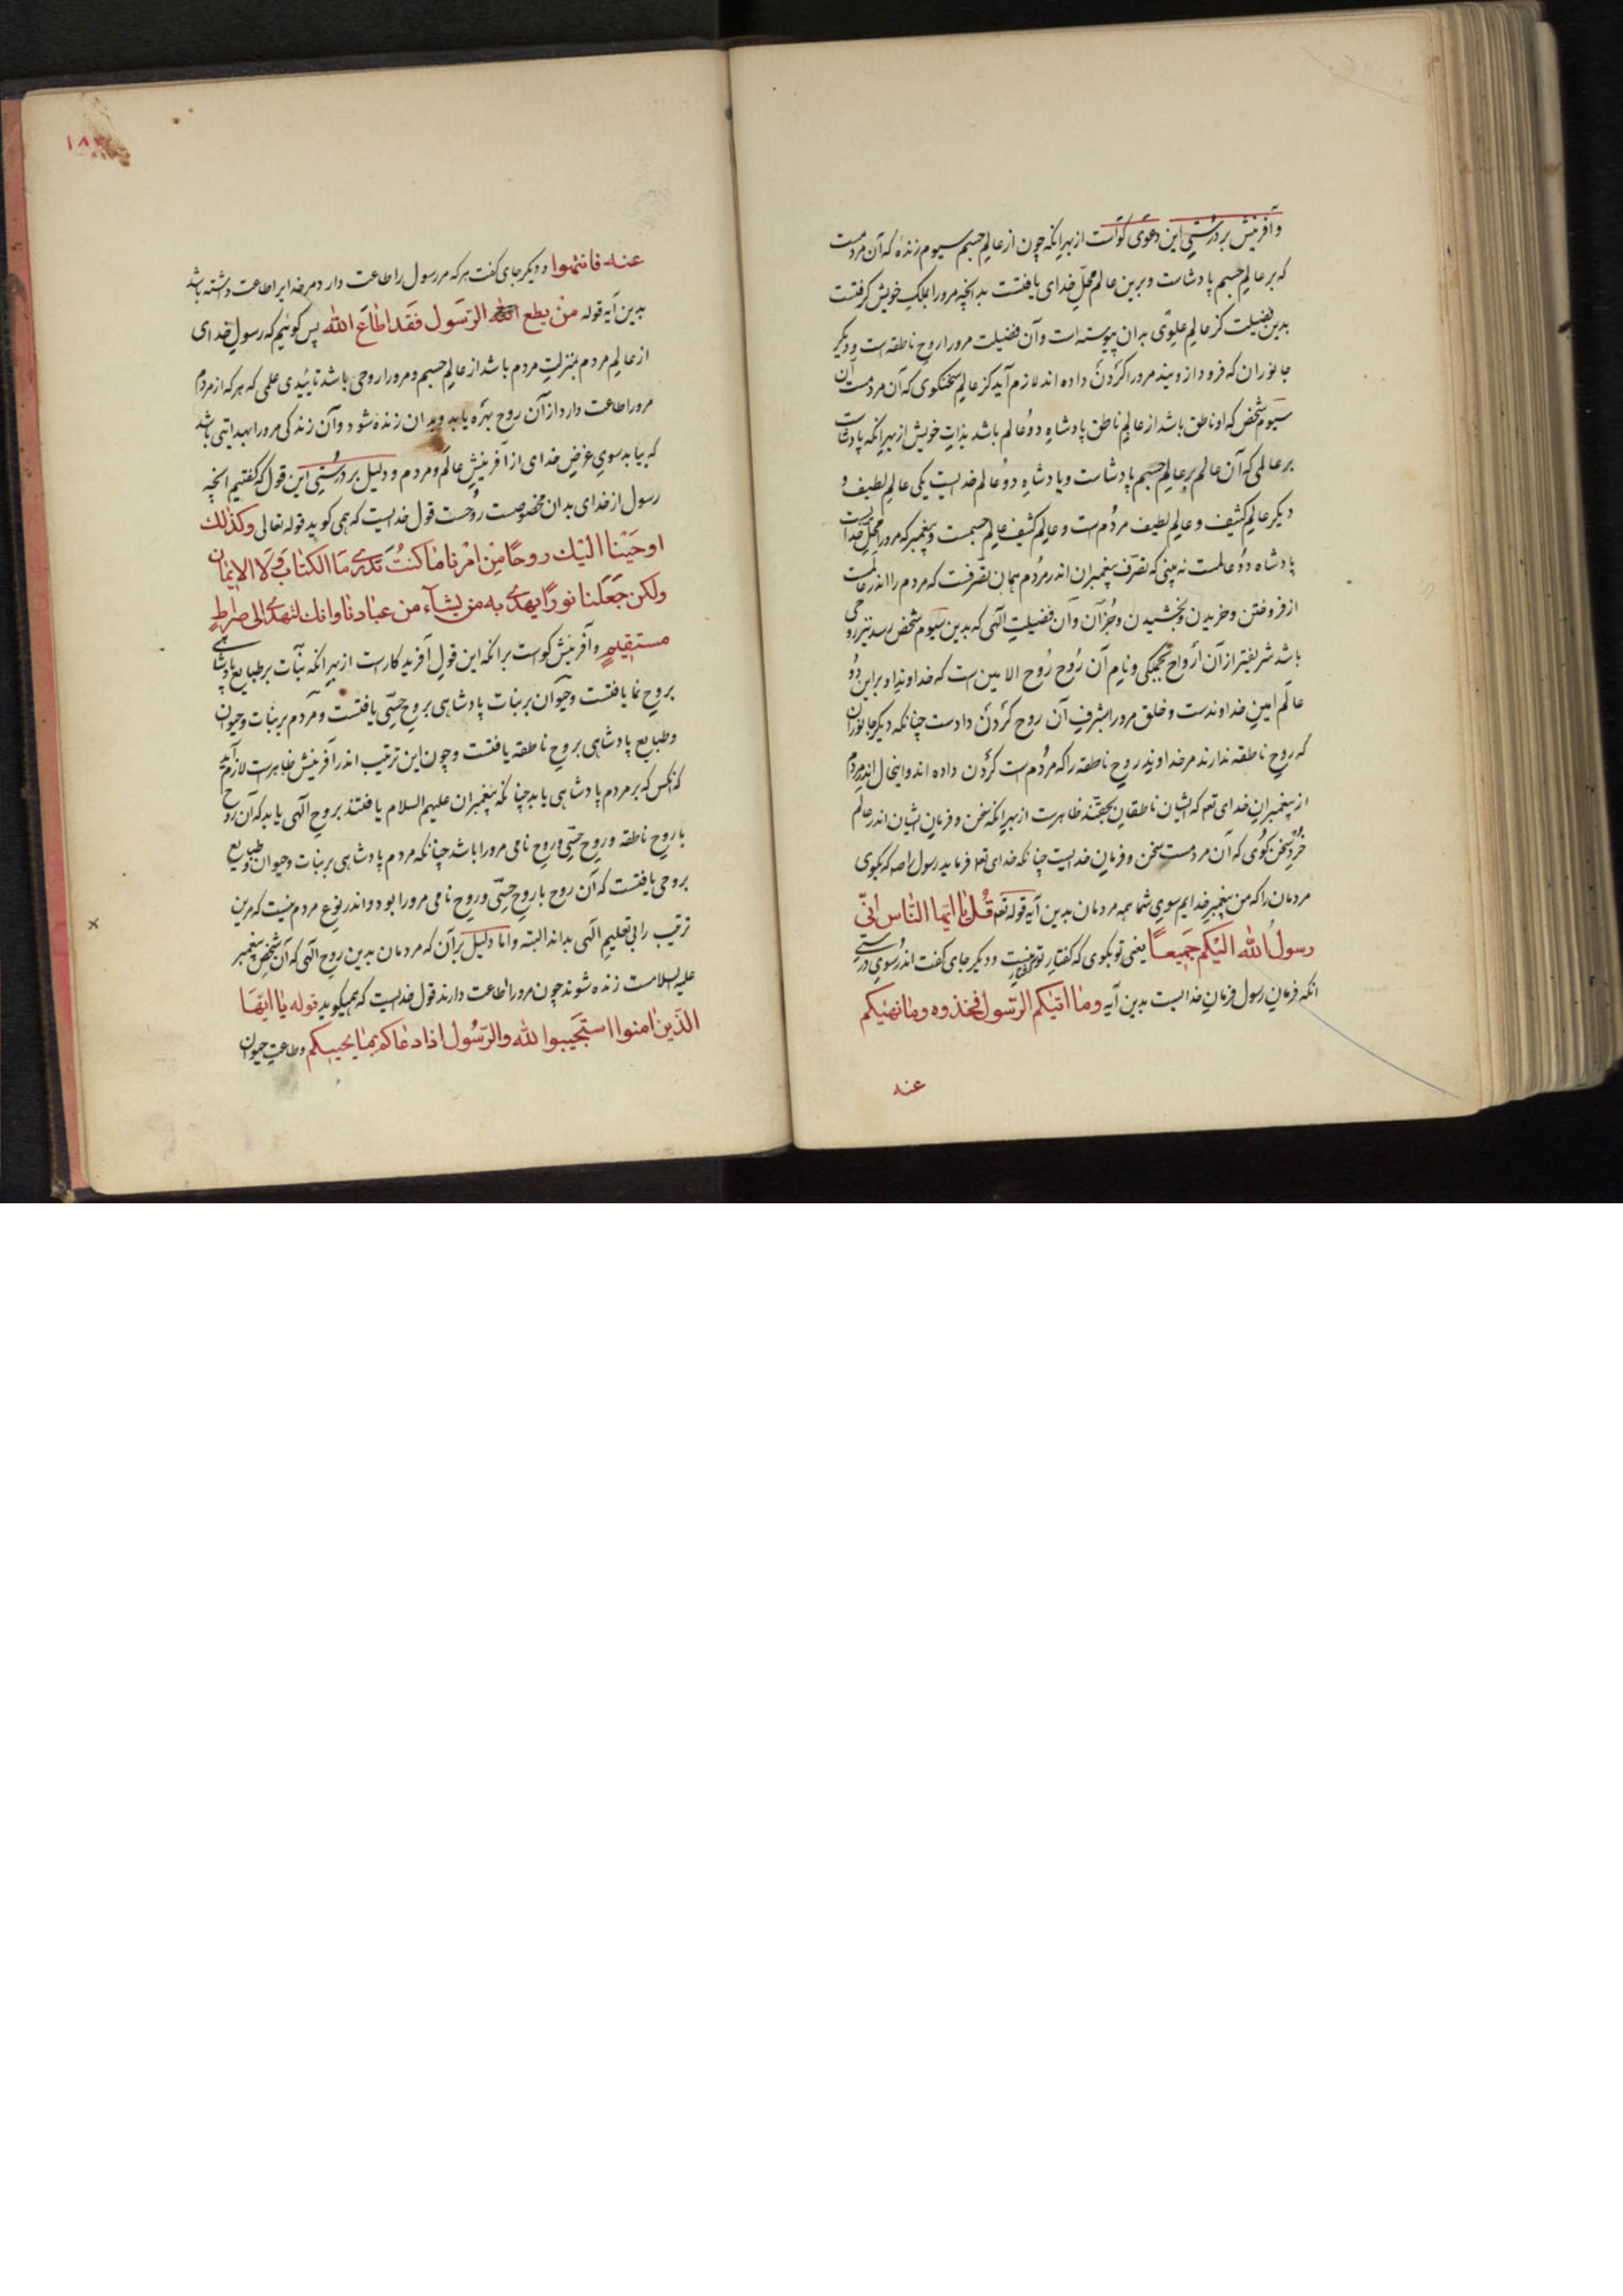 وآفرینش بر درستی این دعوی گواست از بهر انکه چون از عالم جسم سیوم زنده که آن مردمست
که بر عالم جسم پادشاست و برین عالم محل خدای یافتست بدانچه مرورا بملک خویش کرفتست
بدین فضیلت کز عالم علوی بدان پیوسته است وآن فضیلت مرورا روح ناطقه است و دیکر
جانوران که فرود ازویند مرورا کردن داده اند لازم آید کز عالم سخنکوی که آن مردمست آن
سیوم شخص که او ناطق باشد از عالم ناطق پادشاه دو عالم باشد بذات خویش از بهر انکه پادشاست
بر عالمی که آن عالم بر عالم جسم پادشاست و پادشاه دو عالم خدایست یکی عالم لطیف و
دیکر عالم کثیف و عالم لطیف مردمست و عالم کثیف عالم جسمست و پیغمبر که مرورا محل خداست
پادشاه دو عالمست نه بینی که تصرف پیغمبران اندر مردم همان تصرفست که مردم را اندر عالمست
از فروختن وخریدن و بخشیدن و جز آن وآن فضیلت الهی که بدین سیوم شخص رسد نیز روحی
باشد شریفتر از آن ارواح بجملکی ونام آن روح روح الامین است که خداوند او براین دو
عالم امین خداوندست وخلق مرورا بشرف آن روح کردن دادست چنانکه دیکر جانوران
که روح ناطقه ندارند مر خداوند روح ناطقه را که مردم است کردن داده اند واینحال اندر مردم
از پیغمبران خدای تعه که ایشان ناطقان بحقند ظاهرست از بهر انکه سخن وفرمان ایشان اندر عالم
خرد سخن کوی که آن مردمست سخن وفرمان خدایست چنانکه خدای تعه فرماید رسول را صه که بکوی
مردمان را که من پیغمبر خدایم سوی شما همه مردمان بدین آیه قوله تعه قل یا ایها الناس انی
رسول الله الیکم جمیعا یعنی تو بکوی که کفتار تو کفتار منیست ودیکر جای کفت اندر سوی درستی
انکه فرمان رسول فرمان خدایست بدین آیه وما اتیکم الرسول فخذوه وما نهیکم
عنه
۱۸۳
عنه فانتهوا ودیکر جای کفت هر که مر رسول را طاعت دارد مر خدایرا طاعت داشته باشد
بدین آیه قوله من یطع الرسول فقد اطاع الله پس کوئیم که رسول خدای
از عالم مردم بمنزلت مردم باشد از عالم جسم و مرورا روحی باشد تائیدی علمی که هر که از مردم
مرورا طاعت دارد از آن روح بهره یابد وبدان زنده شود وآن زندکی مرورا بهدایتی باشد
که بیابد سوی غرض خدای از آفرینش عالم ومردم و دلیل بر درستی این قول که کفتیم انچه
رسول از خدای بدان مخصوصست روحست قول خدایست که همی کوید قوله تعالی وکذلک
اوحینا الیک روحا من امرنا ما کنت تدری ما الکتاب ولا الایمان
ولکن جعلنا نورا یهدی به من یشاء من عبادنا وانک لتهدی الی صراط
مستقیم وآفرینش کواست برانکه این قول آفریدکارست از بهر انکه نبات بر طبایع پادشاهی
بروح نما یافتست وحیوان بر نبات پادشاهی بروح حسی یافتست ومردم بر نبات وحیوان
وطبایع پادشاهی بروح ناطقه یافتست وچون این ترتیب اندر آفرینش ظاهرست لازم آید
که انکس که بر مردم پادشاهی یابد چنانکه پیغمبران علیهم السلام یافتند بروح الهی یابد که آن روح
با روح ناطقه وروح حسی وروح نامی مرورا باشد چنانکه مردم پادشاهی بر نبات وحیوان وطبایع
بروحی یافتست که آن روح با روح حسی وروح نامی مرورا بود واندر نوع مردم نیست که مرین
ترتیب را بی تعلیم الهی بداند البته واما دلیل بر آن که مردمان بدین روح الهی که آن شخص پیغمبر
علیه السلامست زنده شوند چون مرورا طاعت دارند قول خدایست که همیکوید قوله یا ایها
الذین امنوا استجیبوا لله والرسول اذا دعاکم بما یحییکم وطاعت حیوان